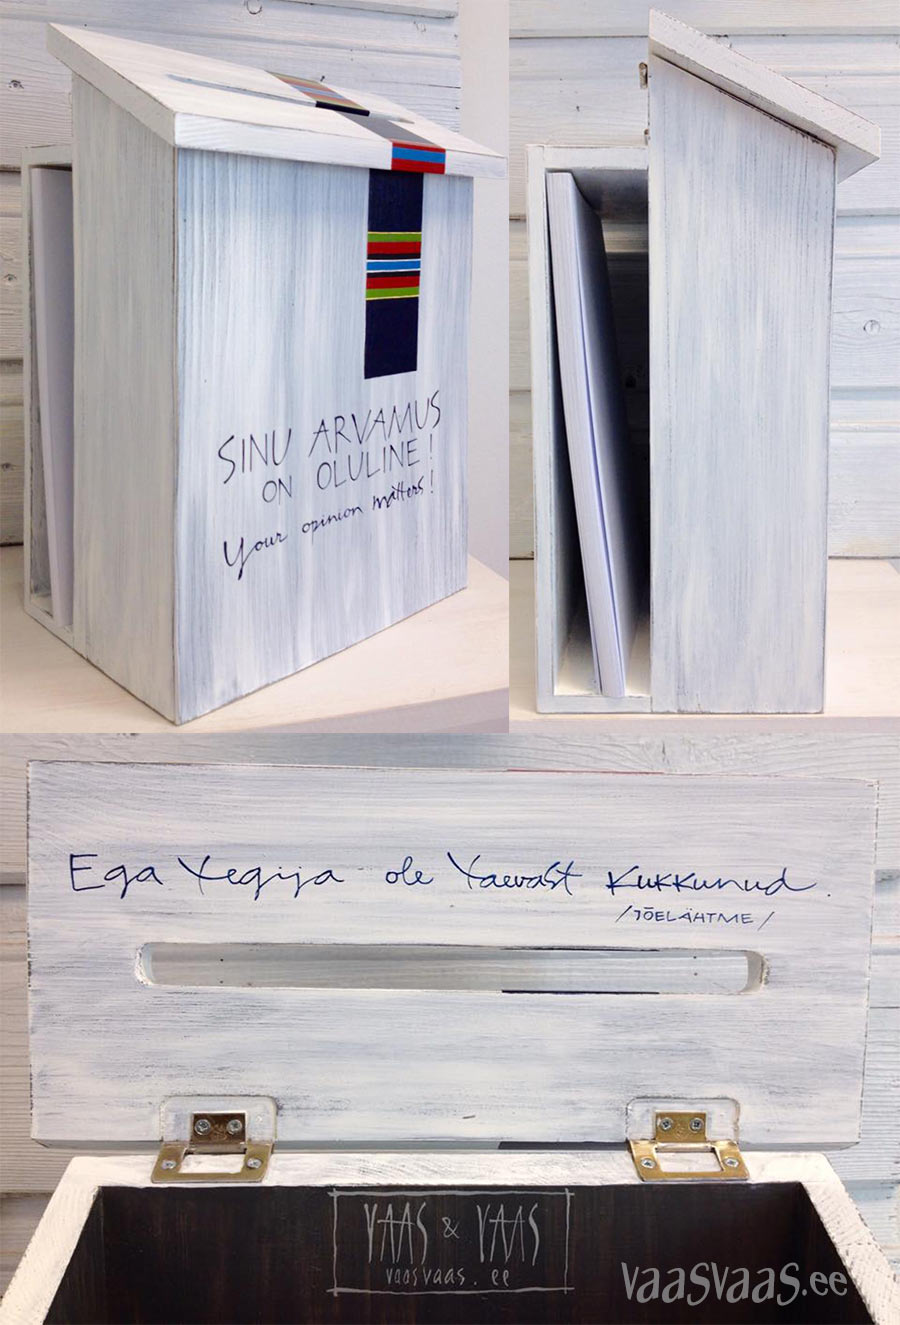 SINU ARVAMUS
ON OLULINE!
Your opinion matters!
Ega tegija ole taevast kukkunud.
/JÕELÄHTME/
VAAS & VAAS
vaasvaas.ee
VaaSVaaS.ee